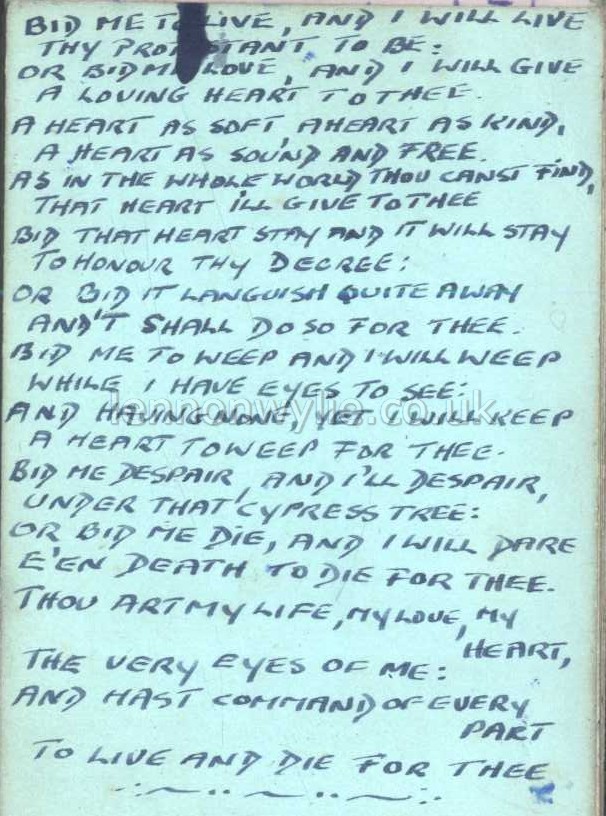 BID ME TO LIVE, AND I WILL LIVE
THY PROTESTANT TO BE:
OR BID ME LOVE, AND I WILL GIVE
A LOVING HEART TO THEE.
A HEART AS SOFT A HEART AS KIND,
A HEART AS SOUND AND FREE.
AS IN THE WHOLE WORLD THOU CANST FIND,
THAT HEART I'LL GIVE TO THEE
BID THAT HEART STAY AND IT WILL STAY
TO HONOUR THY DECREE:
OR BID IT LANGUISH QUITE AWAY
AND'T SHALL DO SO FOR THEE.
BID ME TO WEEP AND I WILL WEEP
WHILE I HAVE EYES TO SEE:
lennonwylie.co.uk
AND HAVING NONE, YET I WILL KEEP
A HEART TO WEEP FOR THEE.
BID ME DESPAIR, AND I'LL DESPAIR,
UNDER THAT CYPRESS TREE:
OR BID ME DIE, AND I WILL DARE
E'EN DEATH TO DIE FOR THEE.
THOU ART MY LIFE, MY LOVE, MY
HEART,
THE VERY EYES OF ME:
AND HAST COMMAND OF EVERY
PART
TO LIVE AND DIE FOR THEE